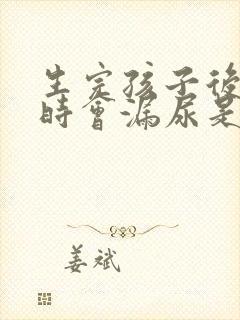 生完孩子後
時會漏尿是
姜斌